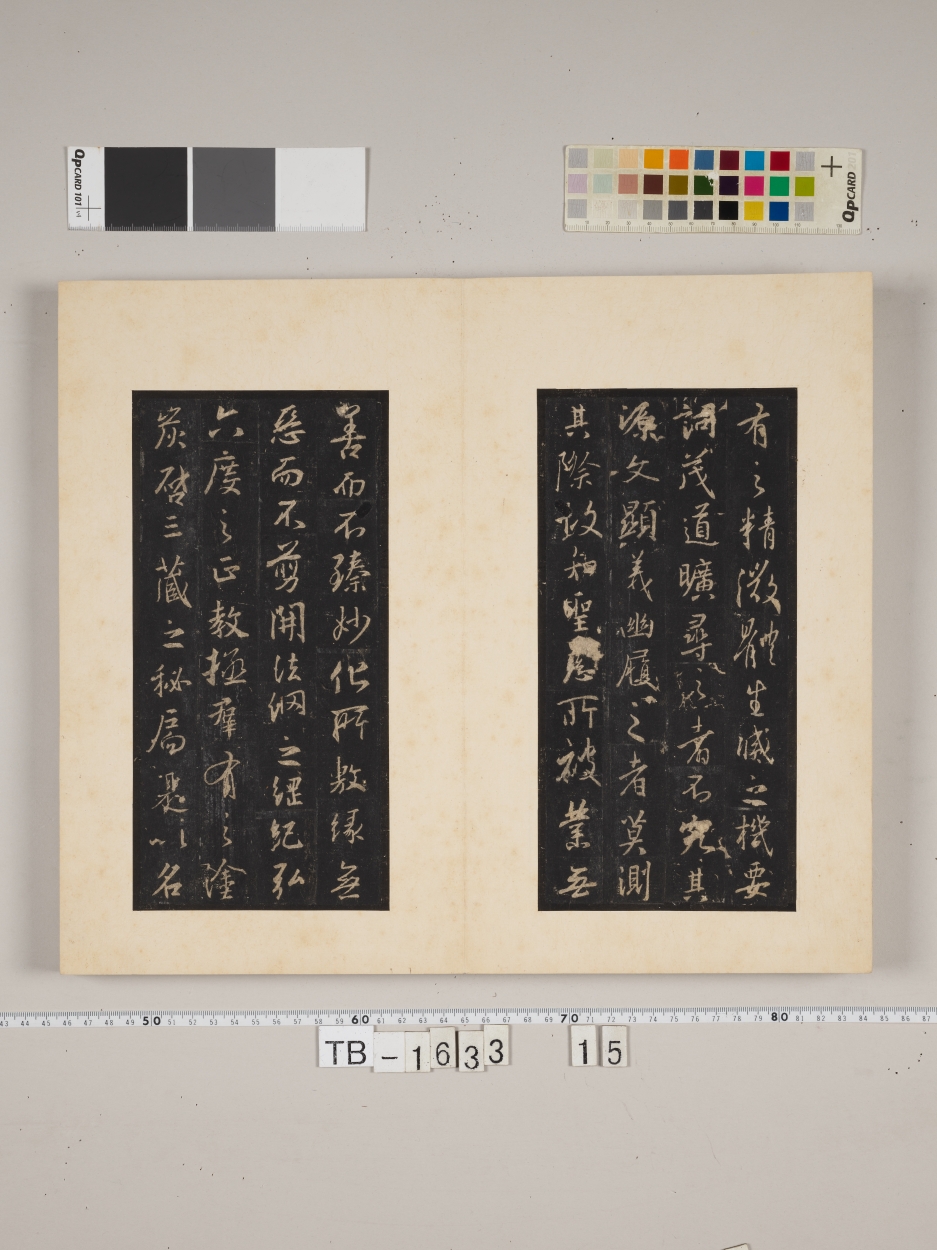 QPCARD 101
QPCARD 201
有之精微體生滅之機要
詞茂道曠尋之者不究其
源文顯義幽履之者莫測
其際故知聖慈所被業無
善而不臻妙化所敷緣無
惡而不剪開法網之綱紀弘
六度之正教拯羣有之塗
炭啓三藏之秘扃是以名
43 44 45 46 47 48 49 50 51 52 53 54 55 56 57 58 59 60 61 62 63 64 65 66 67 68 69 70 71 72 73 74 75 76 77 78 79 80 81 82 83 84 85 86 87
TB-1633 15